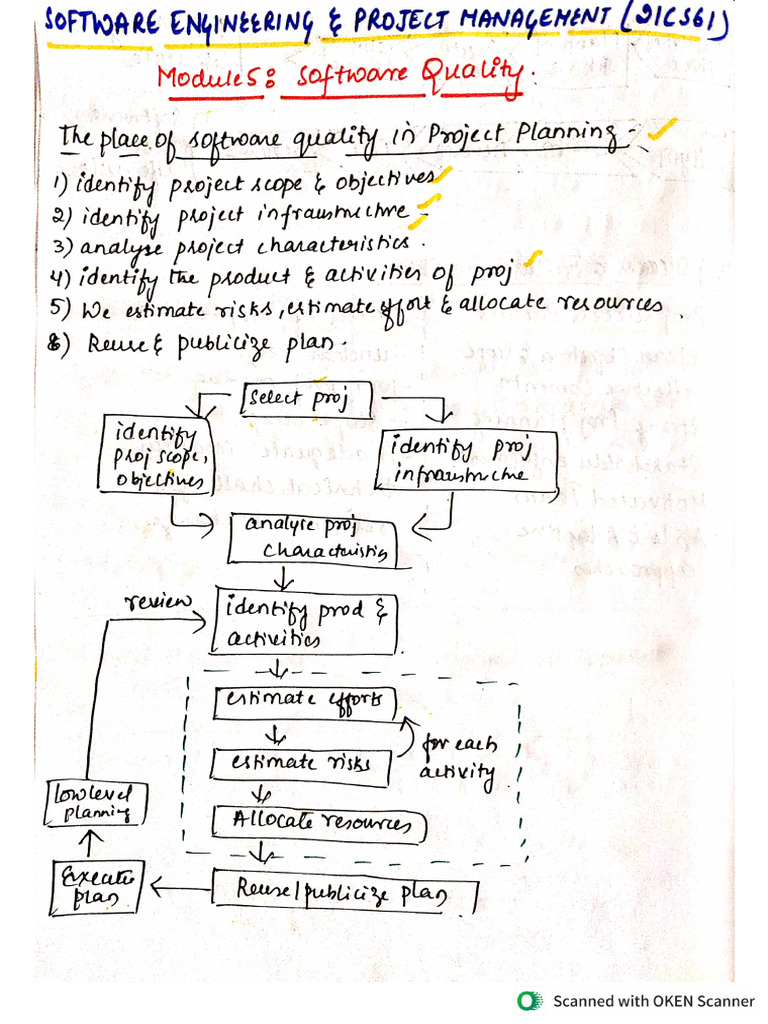 SOFTWARE ENGINEERING & PROJECT MANAGEMENT (21CS61)
Module5: Software Quality.
The place of software quality in Project Planning -
1) identify project scope & objectives
2) identify project infrastructure -
3) analyse project characteristics.
4) identify the product & activities of proj
5) We estimate risks, estimate effort & allocate resources.
6) Reuse & publicize plan.
Select proj
identify
proj scope,
objectives
identify proj
infrastructure
analyse proj
characteristics
review
identify prod &
activities
estimate efforts
for each
activity
estimate risks
low level
planning
Allocate resources
Execute
plan
Reuse/publicize plan
Scanned with OKEN Scanner